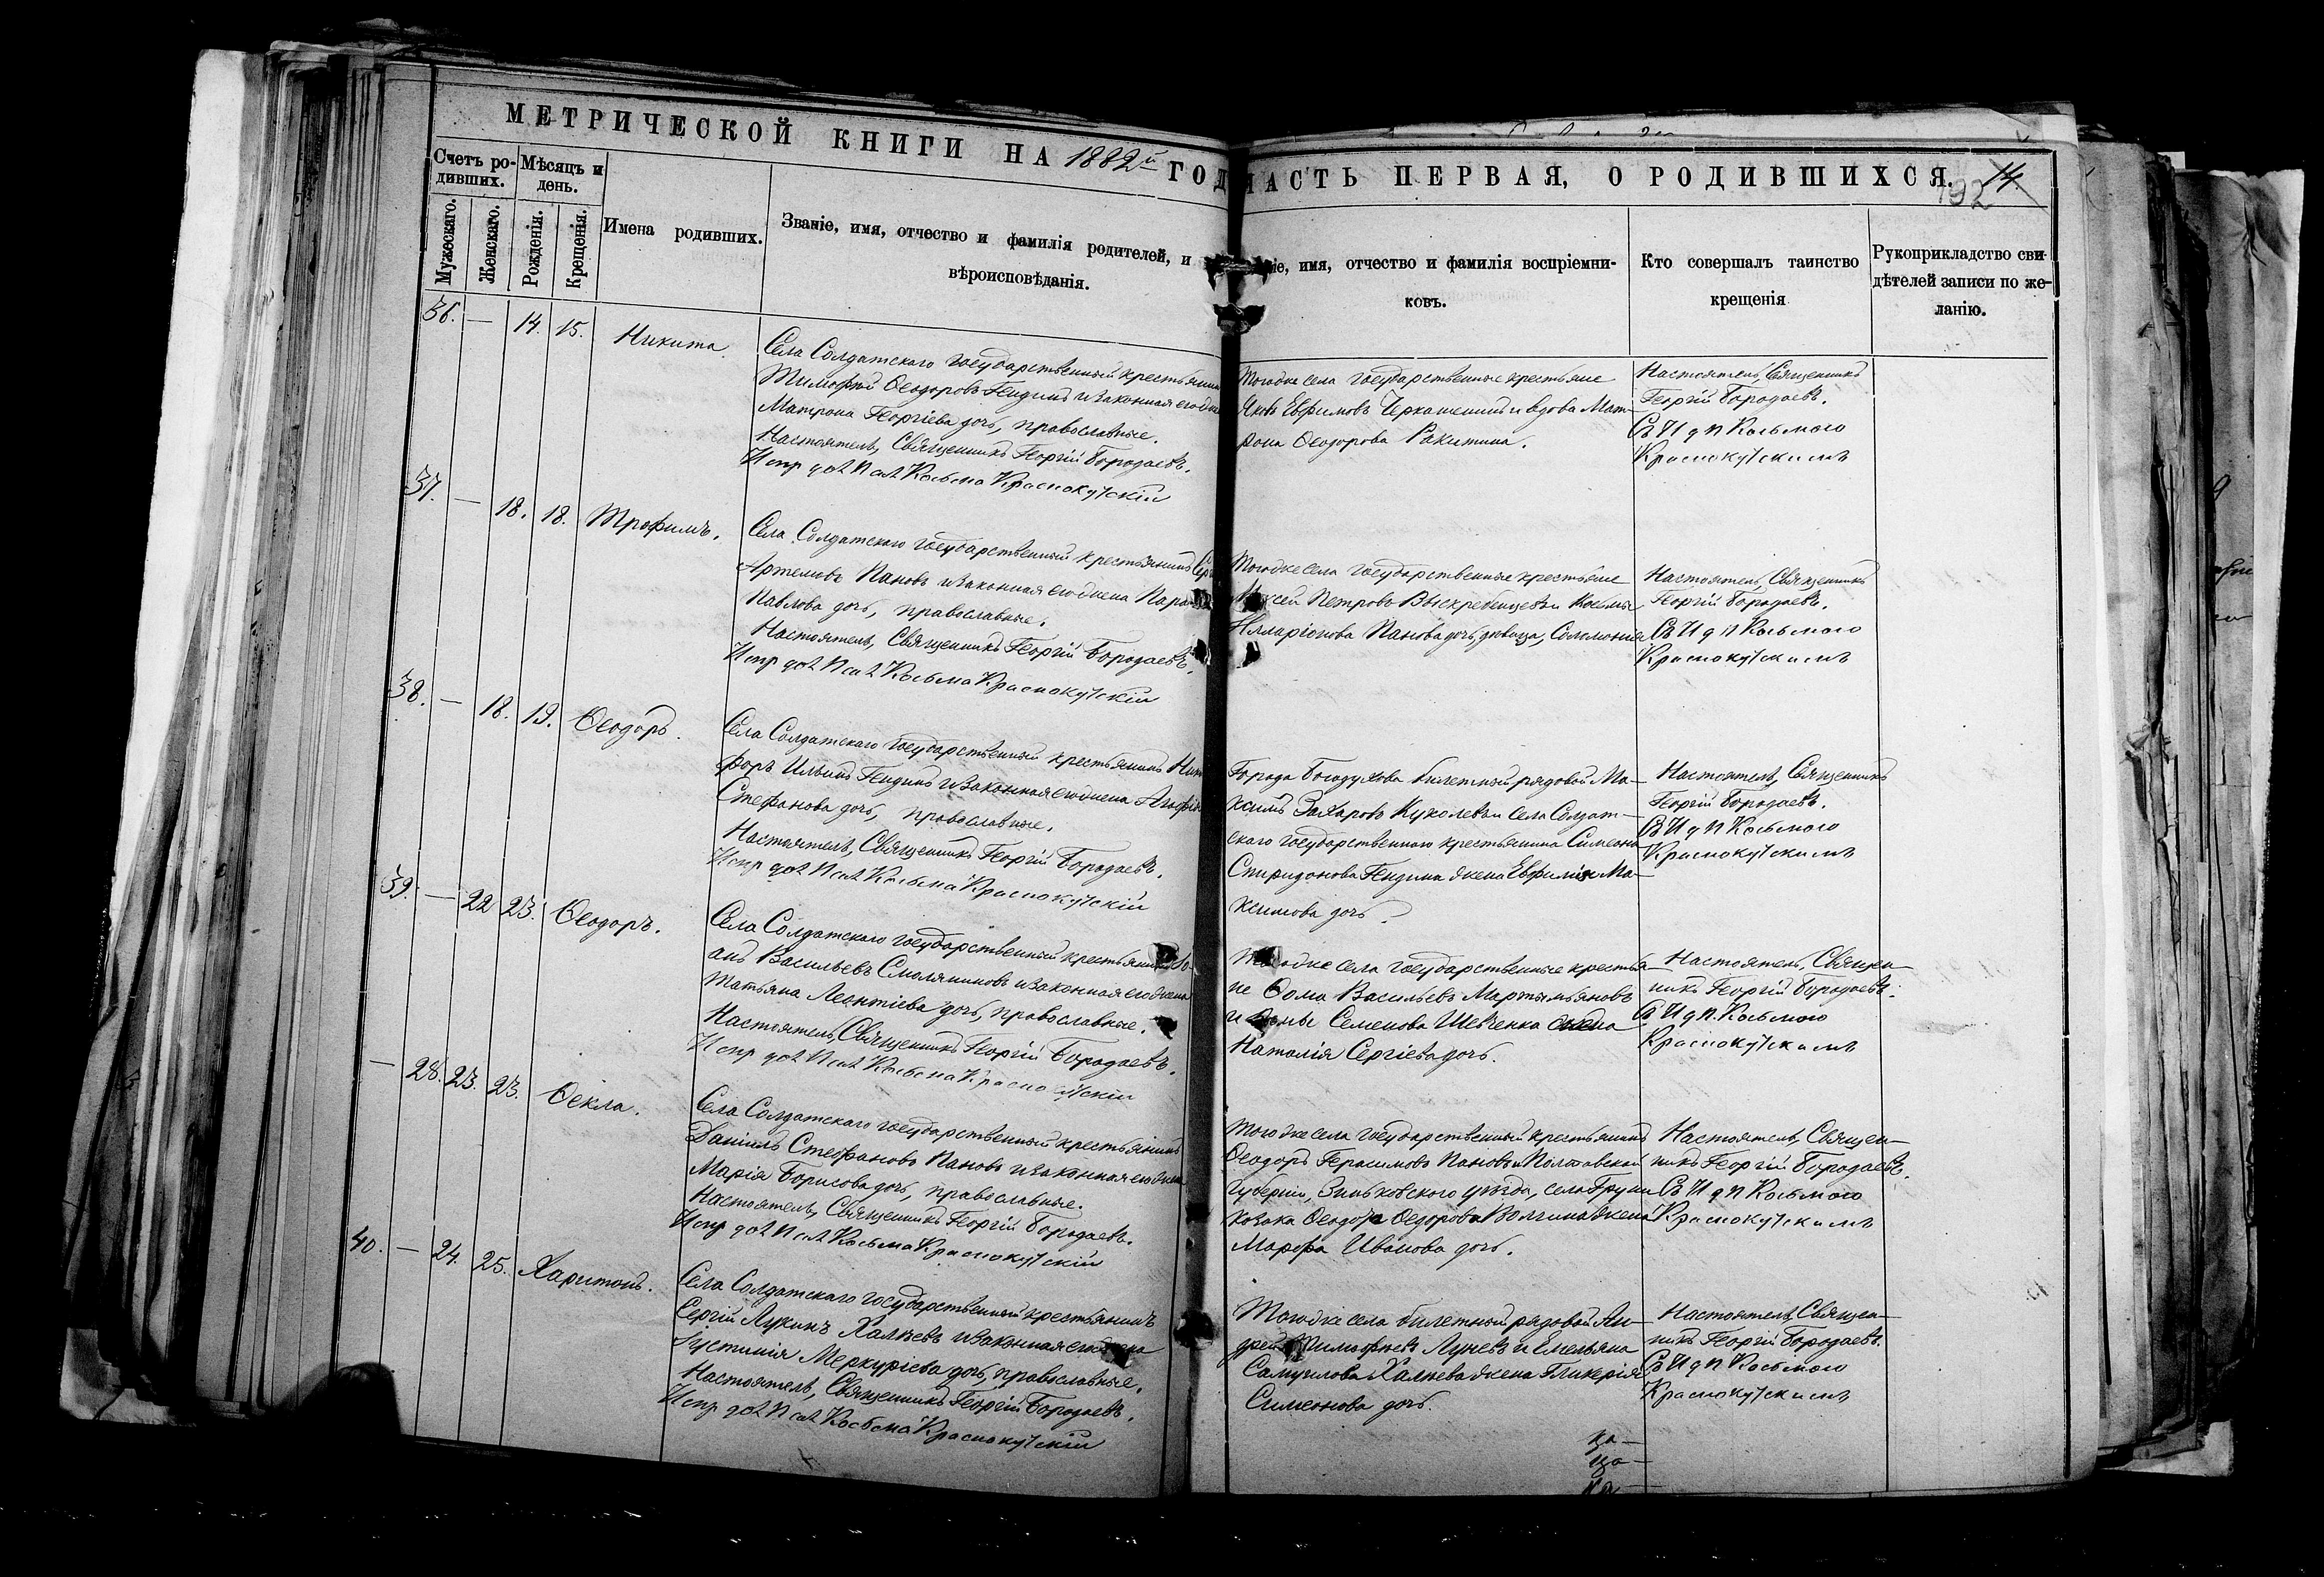 МЕТРИЧЕСКОЙ КНИГИ НА 1882й ГОД
ЧАСТЬ ПЕРВАЯ, О РОДИВШИХСЯ. 14
192
Счетъ ро-
дивших.
Мѣсяцъ и
день.
Мужескаго.
Женскаго.
Рожденія.
Крещенія.
Имена родивших.
Званіе, имя, отчество и фамилія родителей, и
вѣроисповѣданія.
имя, отчество и фамилія воспріемни-
ковъ.
Кто совершалъ таинство
крещенія
Рукоприкладство сви-
дѣтелей записи по же-
ланію.
36. — 14. 15. Никита.
Села Солдатскаго государственный крестьянинъ
Тимофей Ѳеодоровъ Гендинъ и законная его жена
Матрона Георгіева дочь, православные.
Настоятель, Священникъ Георгій Бородаевъ.
Испр дол Псал Косьма Краснокутскій
Тогоже села государственные крестьяне
Яковъ Евфимовъ Черкашенинъ и вдова Мат-
рона Ѳеодорова Ракитина.
Настоятель, Священникъ
Георгій Бородаевъ.
Съ И д П Косьмою
Краснокутскимъ
37. — 18. 18. Трофимъ.
Села Солдатскаго государственный крестьянинъ
Артемовъ Пановъ и законная его жена
Павлова дочь, православные.
Настоятель, Священникъ Георгій Бородаевъ.
Испр дол Псал Косьма Краснокутскій
Тогоже села государственные крестьяне
Петровъ Выскребенцевъ и Косьмы
Илларіонова Панова дочь, дѣвица, Соломонія
Настоятель, Священникъ
Георгій Бородаевъ.
Съ И д П Косьмою
Краснокутскимъ
38. — 18. 19. Ѳеодоръ.
Села Солдатскаго государственный крестьянинъ Ники-
форъ Ильинъ Гендинъ и законная его жена Агафія
Стефанова дочь, православные.
Настоятель, Священникъ Георгій Бородаевъ.
Испр дол Псал Косьма Краснокутскій
Города Богодухова билетный рядовой Ма-
ксимъ Захаровъ Куколевъ и села Солдат-
скаго государственнаго крестьянина Симеона
Спиридонова Гендина жена Евфимія Ма-
ксимова дочь.
Настоятель, Священникъ
Георгій Бородаевъ.
Съ И д П Косьмою
Краснокутскимъ
39. — 22 23. Ѳеодоръ.
Села Солдатскаго государственный крестьянинъ Іо-
анъ Васильевъ Смоляниновъ и законная его жена
Татьяна Леонтіева дочь, православные.
Настоятель, Священникъ Георгій Бородаевъ.
Испр дол Псал Косьма Краснокутскій
Тогоже села государственные крестья-
не Ѳома Васильевъ Мартемьяновъ
и Семенова Шевченка жена
Наталія Сергіева дочь.
Настоятель, Священ-
никъ Георгій Бородаевъ.
Съ И д П. Косьмою
Краснокутскимъ
— 28. 23. 23. Ѳекла.
Села Солдатскаго государственный крестьянинъ
Даніилъ Стефановъ Пановъ и законная его жена
Марія Борисова дочь, православные.
Настоятель, Священникъ Георгій Бородаевъ.
Испр дол Псал Косьма Краснокутскій
Тогоже села государственный крестьянинъ
Ѳеодоръ Герасимовъ Пановъ и Полтавской
Губерніи, Зиньковскаго уѣзда, села Груни
козака Ѳеодора Ѳедорова Волгина жена
Марфа Иванова дочь.
Настоятель, Священ-
никъ Георгій Бородаевъ.
Съ И д П Косьмою
Краснокутскимъ
40. — 24. 25. Харитонъ.
Села Солдатскаго государственный крестьянинъ
Сергій Лукинъ Халпевъ и законная его жена
Іустинія Меркуріева дочь, православные.
Настоятель, Священникъ Георгій Бородаевъ.
Испр дол Псал Косьма Краснокутскій
Тогоже села билетный рядовой Ан-
дрей Тимофеевъ Луневъ и Емельяна
Самуилова Халпева жена Гликерія
Симеонова дочь.
Настоятель, Священ-
никъ Георгій Бородаевъ.
Съ И д П Косьмою
Краснокутскимъ